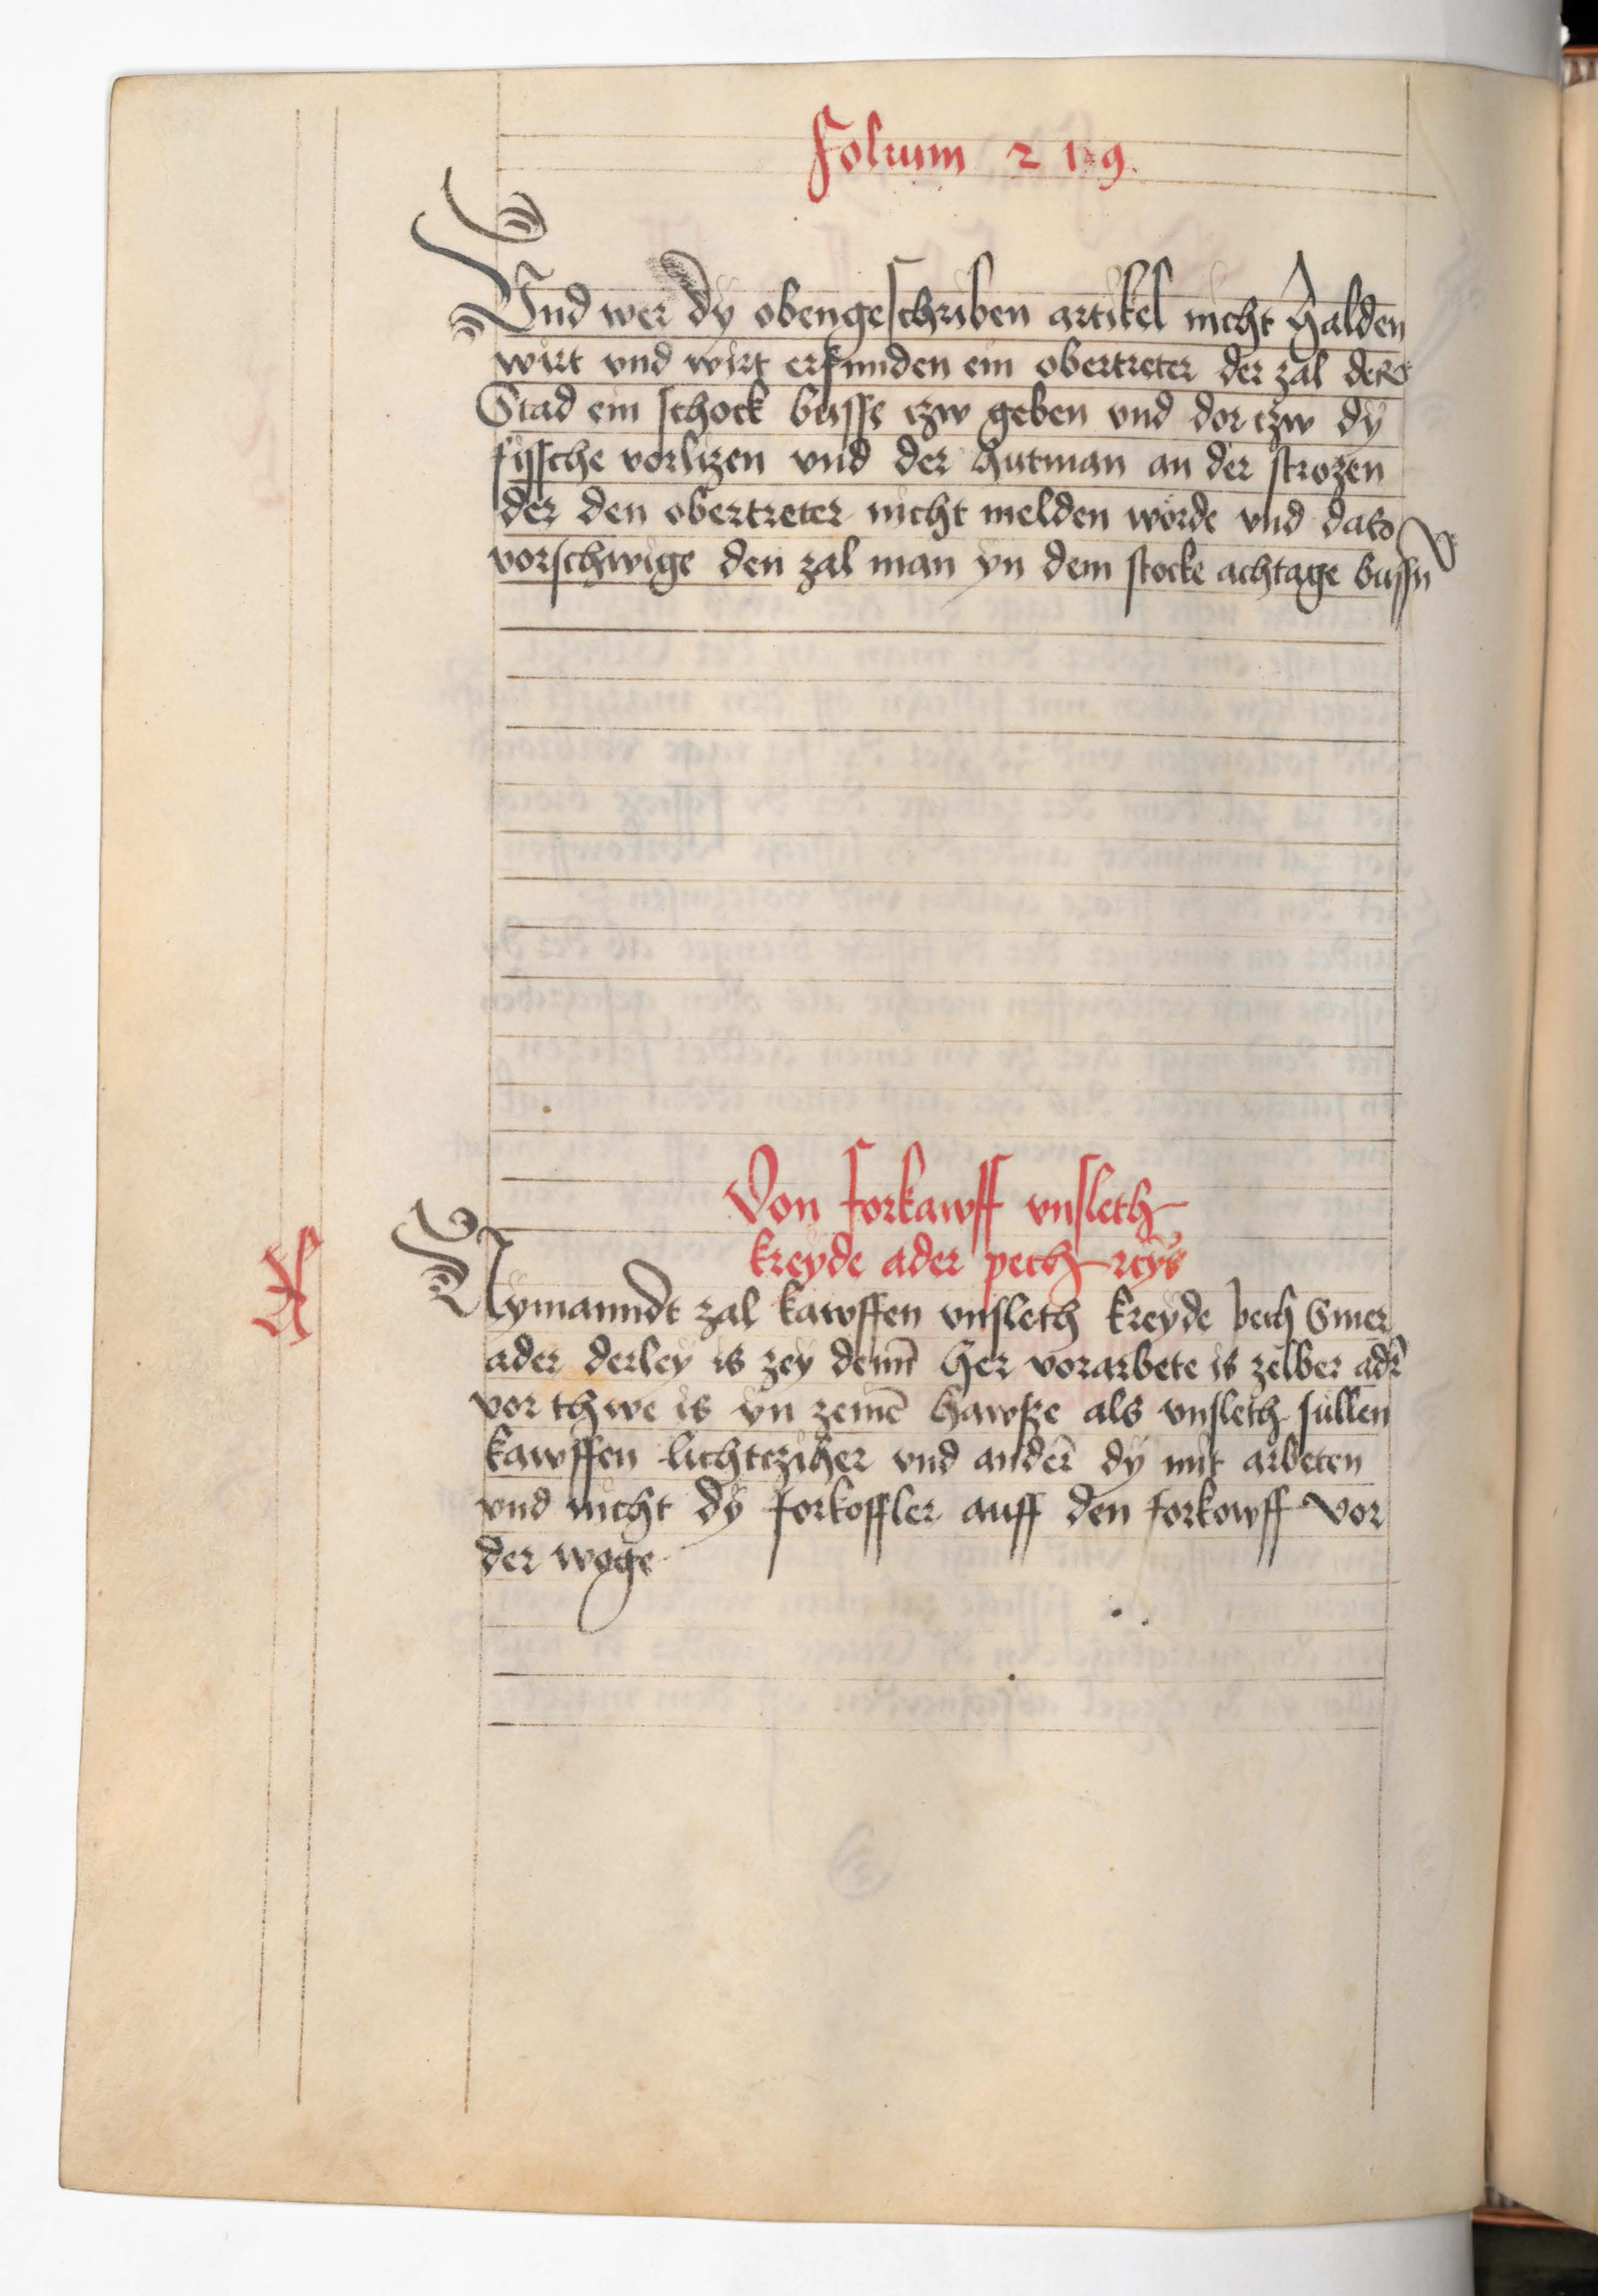 Folium 219.
Vnd wer dy obengeschriben artikel nicht halden
wirt vnd wirt erfunden ein obertreter der zal der
Stad ein schock busse czw geben vnd dor czw dy
fyssche vorlizen vnd der hutman an der strozen
der den obertreter nicht melden worde vnd das
vorschwige den zal man yn dem stocke achtage bussn
Von forkawff vnsleth
kreyde ader pech rcÿs
Nymanndt zal kawffen vnsleth kreyde pech Smer
ader derley is zey deñ her vorarbete is zelber adr̄
vor thwe is yn zeinē hawsze als vnsleth sullen
kawffen lichtcziher vnd ander̄ dy mit arbeten
vnd nicht dy forkoffler auff den forkowff vor
der woge